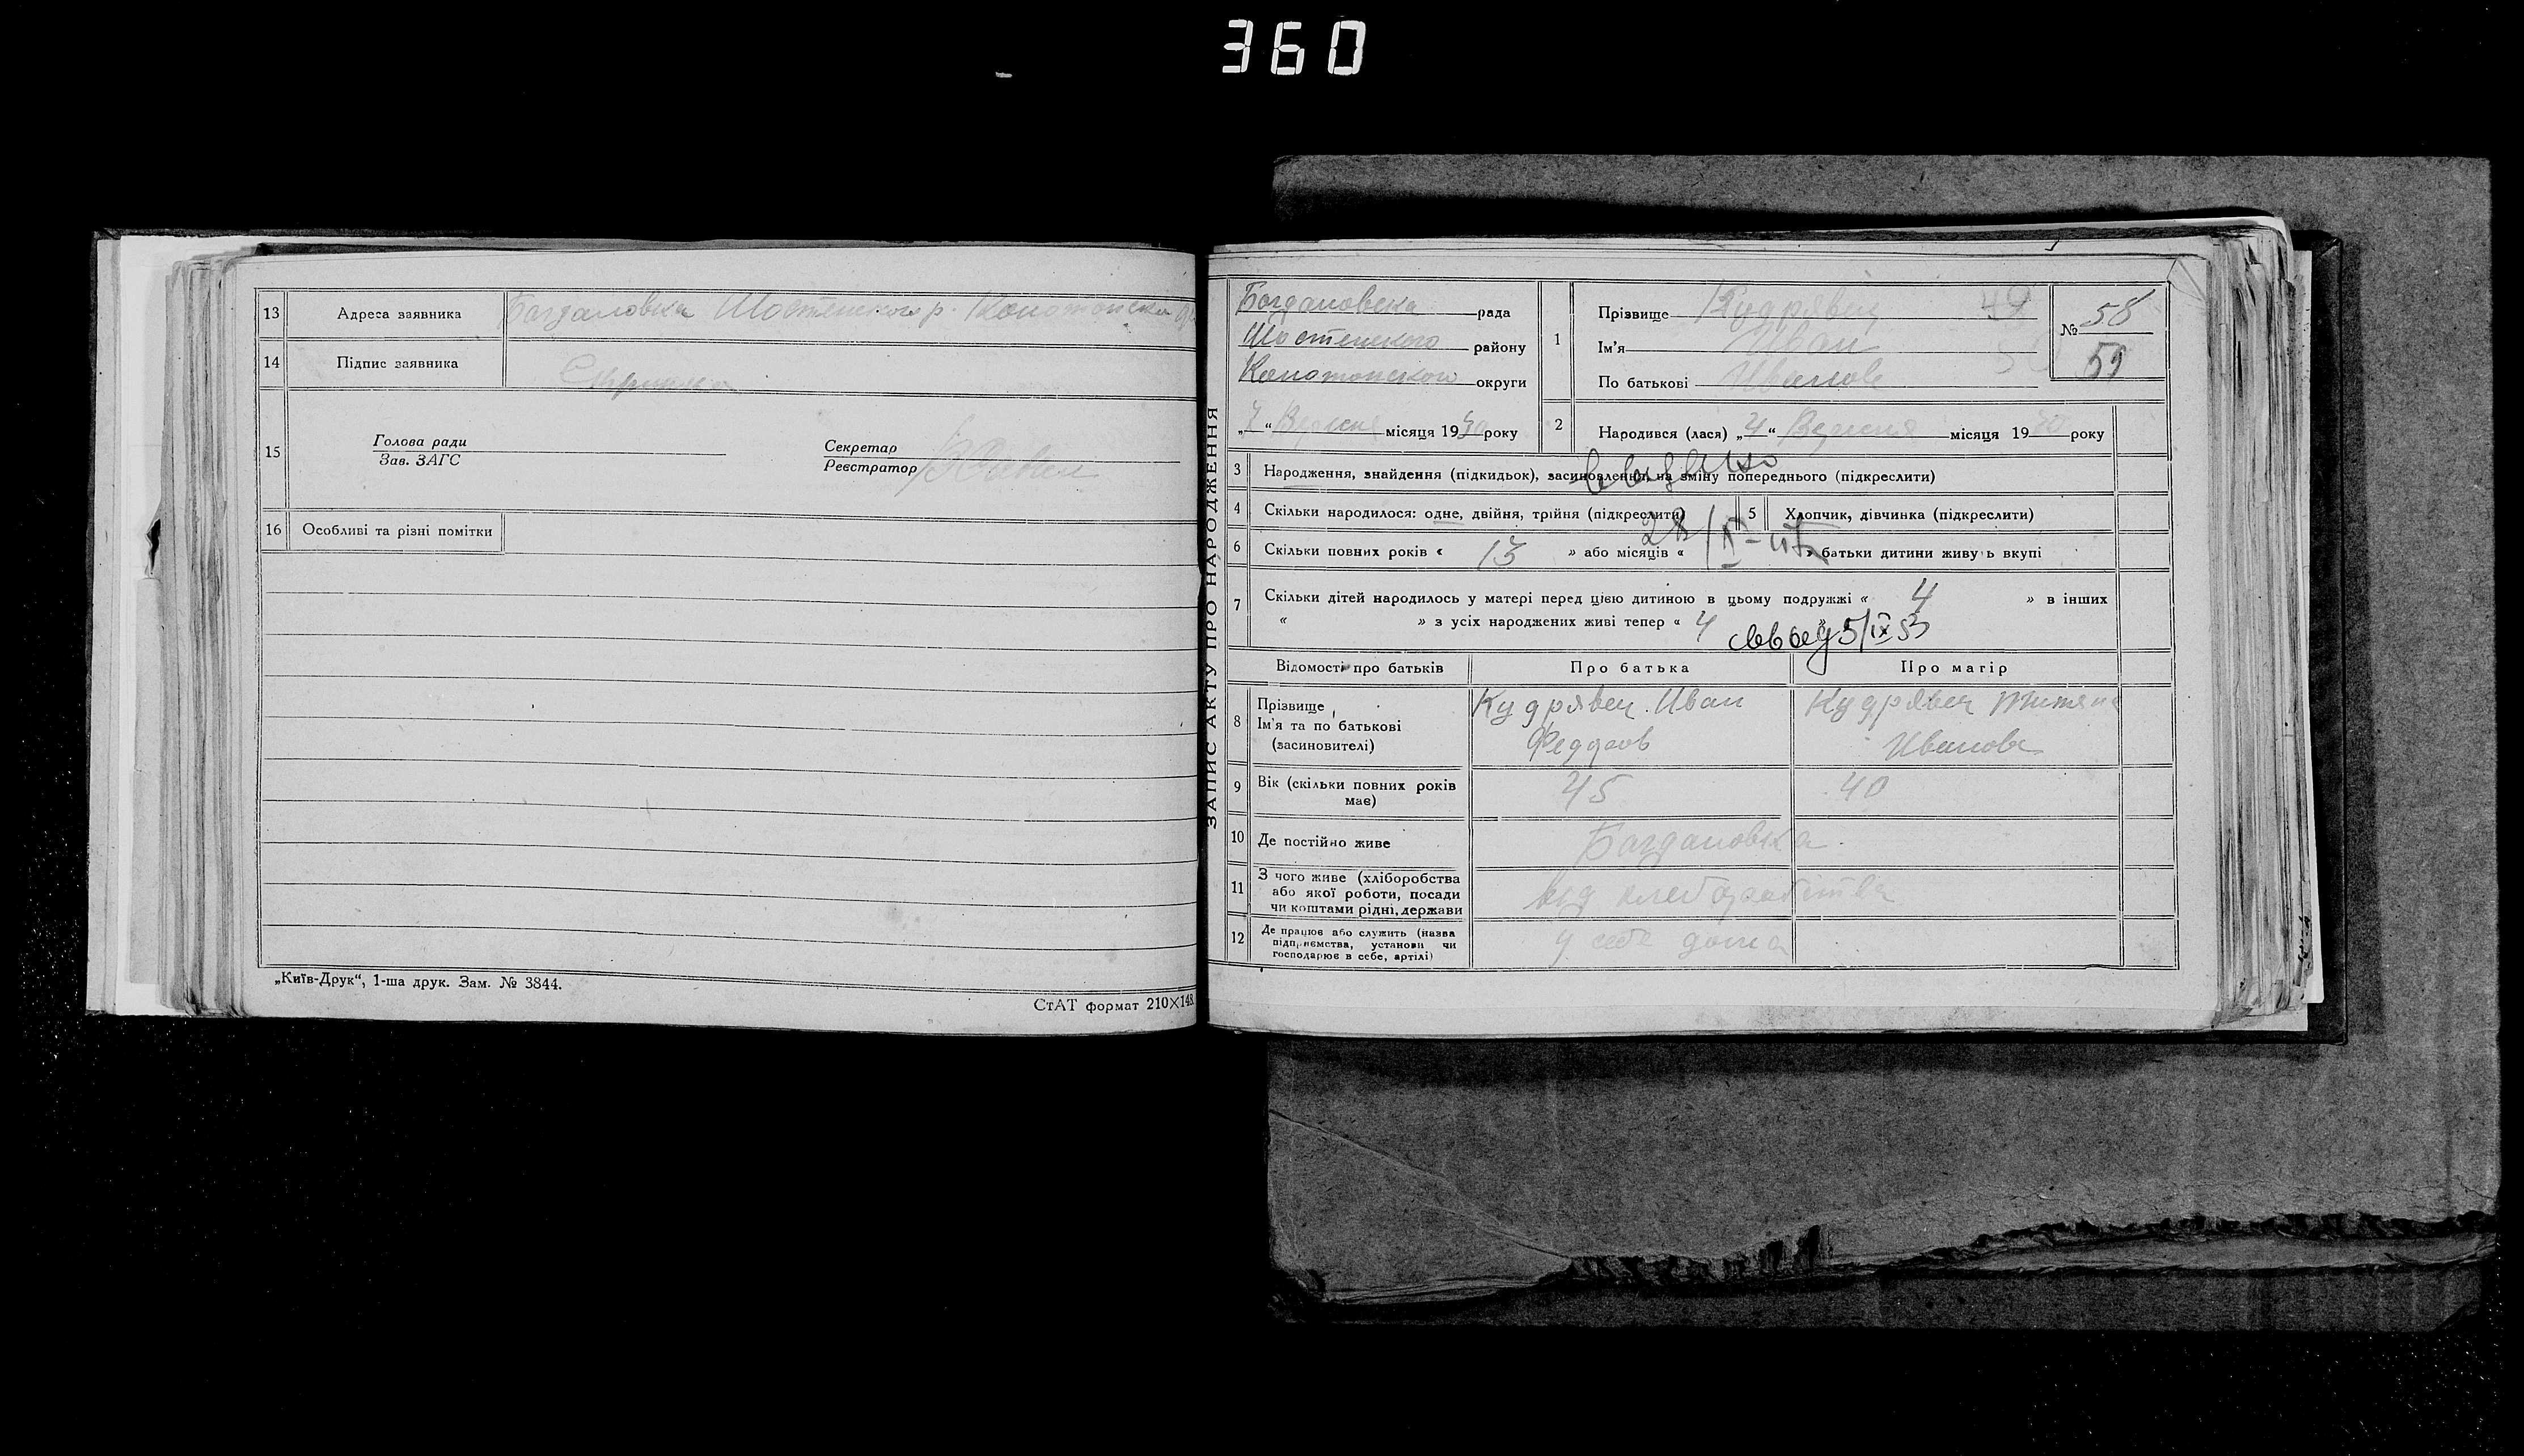 360
13 Адреса заявника Богдановка Шостенского р. Конотопска
14 Підпис заявника
15 Голова ради
Зав. ЗАГС
Секретар
Реєстратор
16 Особливі та різні помітки
„Київ-Друк“, 1-ша друк. Зам. № 3844.
СтАТ формат 210×148
ЗАПИС АКТУ ПРО НАРОДЖЕННЯ
Богдановска рада
Шостенского району
Конотопского округи
„7“ Вересня місяця 1930 року
1 Прізвище Кудрявец 49
Ім'я Иван
По батькові Иванов
№ 58
59
2 Народився (лася) „4“ Вересня місяця 1930 року
3 Народження, знайдення (підкидьок), засиновлення, на зміну попереднього (підкреслити)
4 Скільки народилося: одне, двійня, трійня (підкреслити) 5 Хлопчик, дівчинка (підкреслити)
6 Скільки повних років « 13 » або місяців « » батьки дитини живуть вкупі
7 Скільки дітей народилось у матері перед цією дитиною в цьому подружжі « 4 » в інших
« » з усіх народжених живі тепер « 4 »
5/IX 53
Відомості про батьків Про батька Про матір
8 Прізвище
Ім'я та по батькові
(засиновителі)
Кудрявец Иван
Феддов
Кудрявец Титяна
Иванова
9 Вік (скільки повних років має) 45 40
10 Де постійно живе Богдановка
11 З чого живе (хліборобства
або якої роботи, посади
чи коштами рідні, держави
від
12 Де працює або служить (назва
підприємства, установи чи
господарює в себе, артілі)
у себе дома